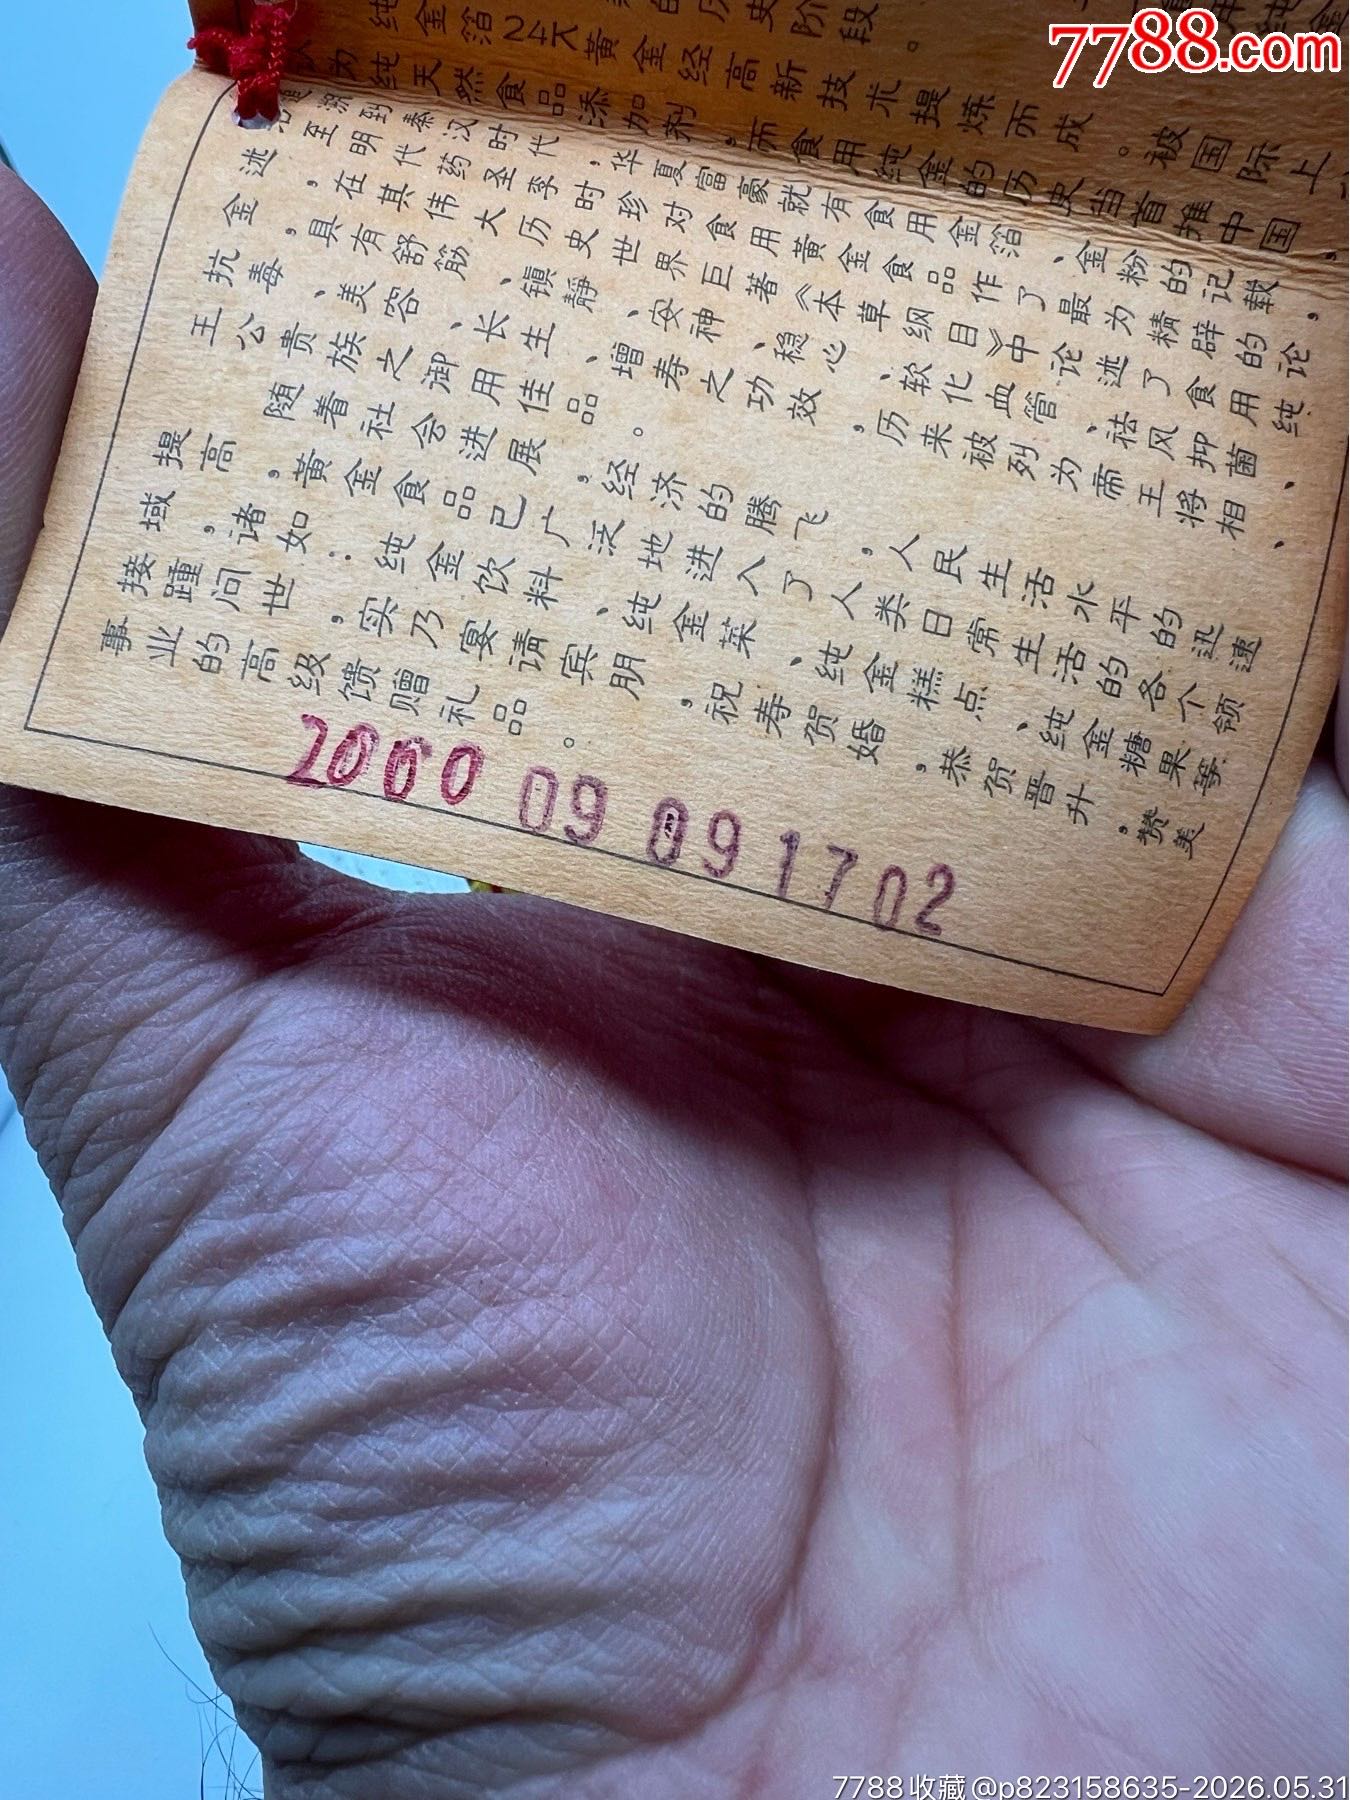 7788.com
历史阶段。
纯金箔24K黄金经高新技术提炼而成。被国际上
为纯天然食品添加剂，而食用纯金的历史当首推中国，
溯到秦汉时代，华夏富豪就有食用金箔、金粉的记载，
至明代药圣李时珍对食用黄金食品作了最为精辟的论
述，在其伟大历史世界巨著《本草纲目》中论述了食用纯
金，具有舒筋、镇静、安神、稳心、软化血管、祛风抑菌、
抗毒、美容、长生、增寿之功效，历来被列为帝王将相、
王公贵族之御用佳品。
随着社会进展，经济的腾飞，人民生活水平的迅速
提高，黄金食品已广泛地进入了人类日常生活的各个领
域，诸如：纯金饮料、纯金菜、纯金糕点、纯金糖果等
接踵问世，实乃宴请宾朋，祝寿贺婚，恭贺晋升，赞美
事业的高级馈赠礼品。
2000 09 09 1702
7788收藏@p823158635-2026.05.31